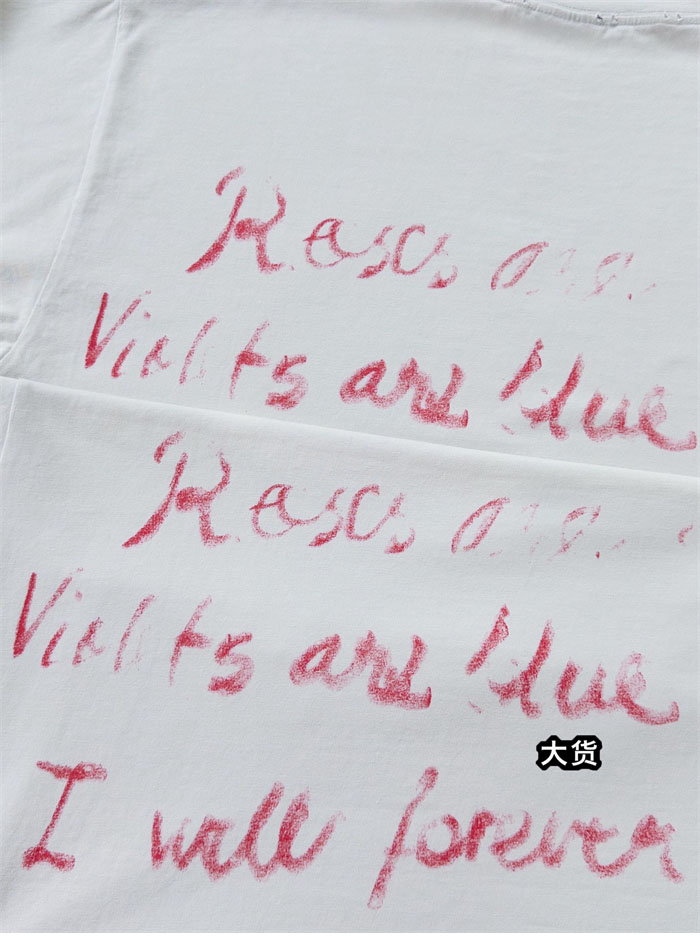 Roses are
Violets are blue
Roses are
Violets are blue
大货
I will forever